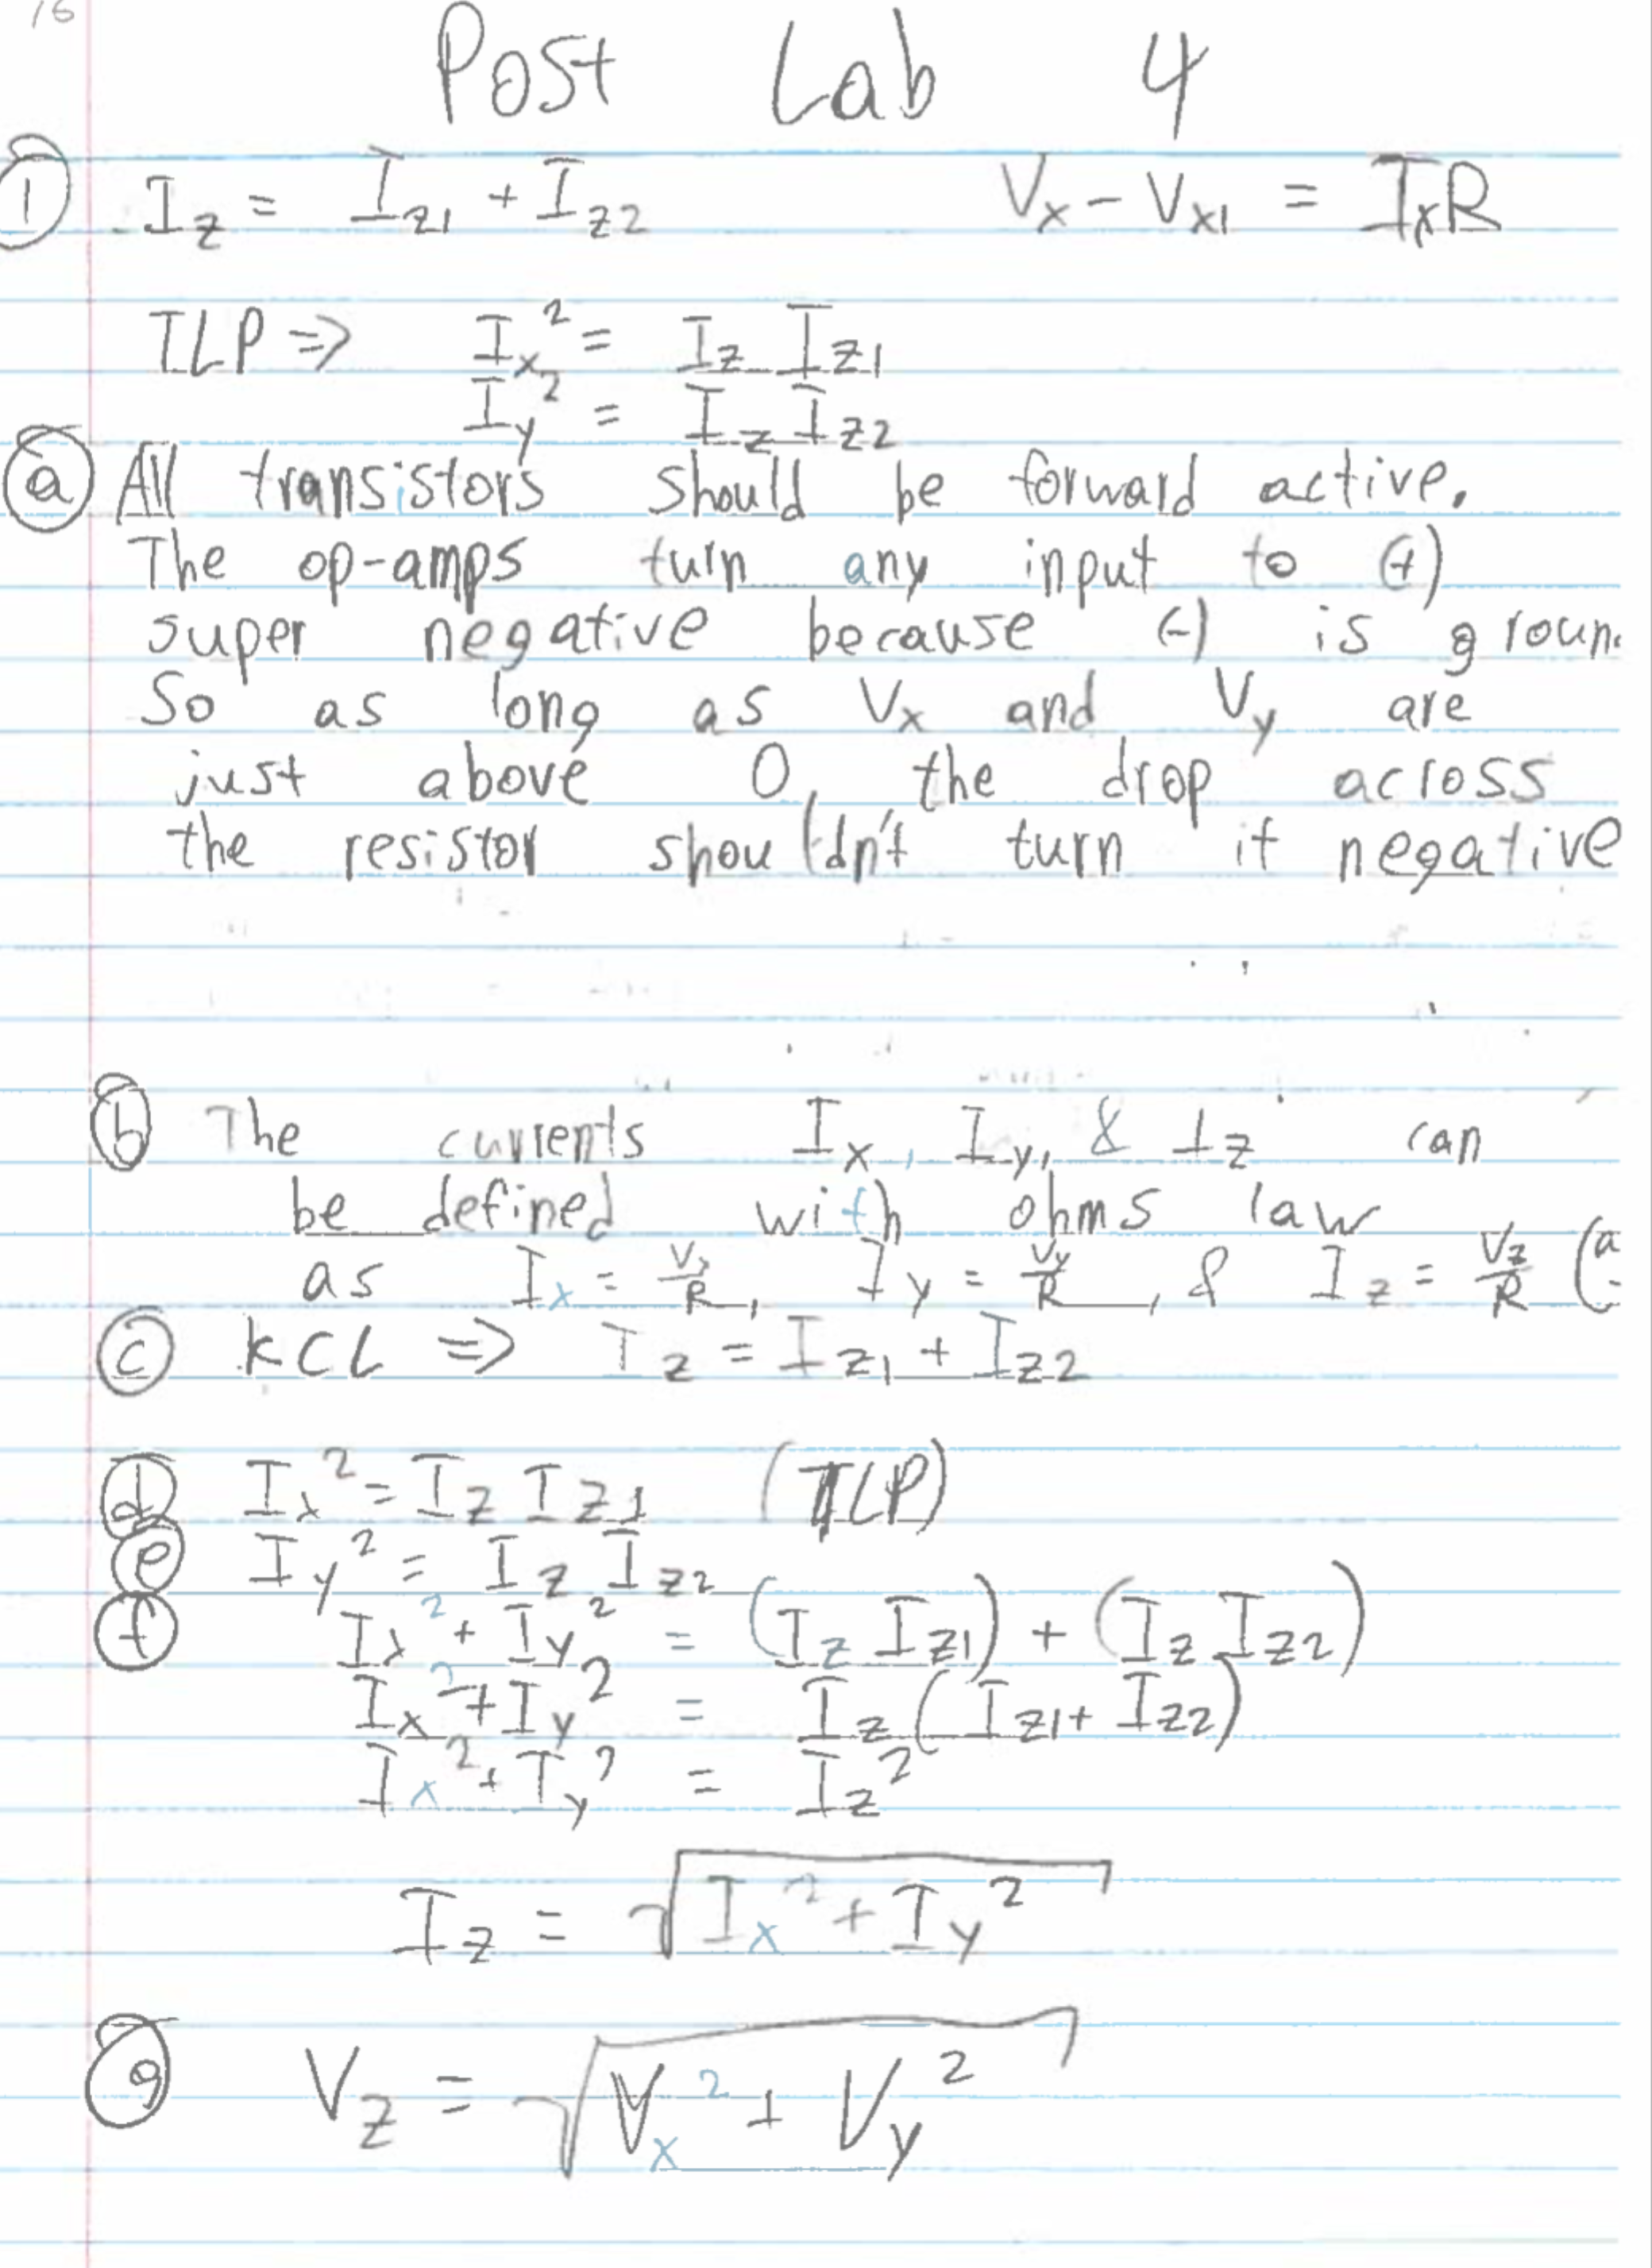 16
Post Lab 4
① I_z = I_z1 + I_z2 V_x - V_x1 = I_x R
TLP => I_x² = I_z I_z1
I_y² = I_z I_z2
ⓐ All transistors should be forward active.
The op-amps turn any input to (+)
super negative because (-) is groun
So as long as V_x and V_y are
just above 0, the drop across
the resistor shouldn't turn it negative
ⓑ The currents I_x, I_y, & I_z can
be defined with ohms law
as I_x = V_x/R, I_y = V_y/R, & I_z = V_z/R (a
ⓒ KCL => I_z = I_z1 + I_z2
ⓓ I_x² = I_z I_z1 (TLP)
ⓔ I_y² = I_z I_z2
ⓕ I_x² + I_y² = (I_z I_z1) + (I_z I_z2)
I_x² + I_y² = I_z (I_z1 + I_z2)
I_x² + I_y² = I_z²
I_z = √(I_x² + I_y²)
ⓖ V_z = √(V_x² + V_y²)